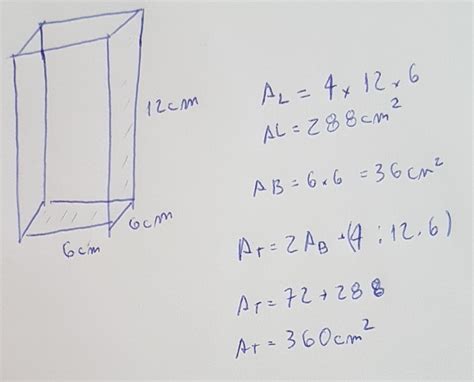 12cm
6cm
6cm
AL = 4 × 12 × 6
AL = 288cm²
AB = 6 × 6 = 36cm²
AT = 2AB + (4 : 12 . 6)
AT = 72 + 288
AT = 360cm²